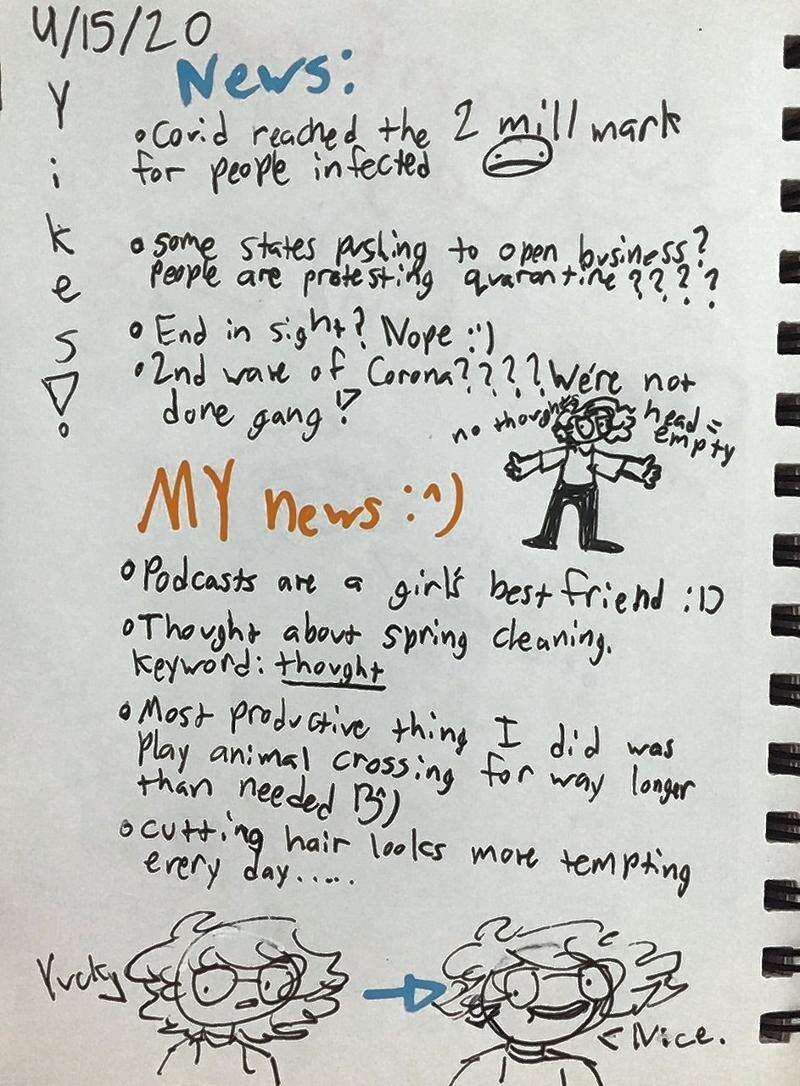 4/15/20
Yikes!
News:
• Covid reached the 2 mill mark
for people infected
• some states pushing to open business?
People are protesting quarantine????
• End in sight? Nope :')
• 2nd wave of Corona???? We're not
done gang!?
no thoughts head =
empty
MY news :^)
• Podcasts are a girl's best friend :D
• Thought about spring cleaning.
keyword: thought
• Most productive thing I did was
play animal crossing for way longer
than needed B^)
• cutting hair looks more tempting
every day.....
Yucky
< Nice.